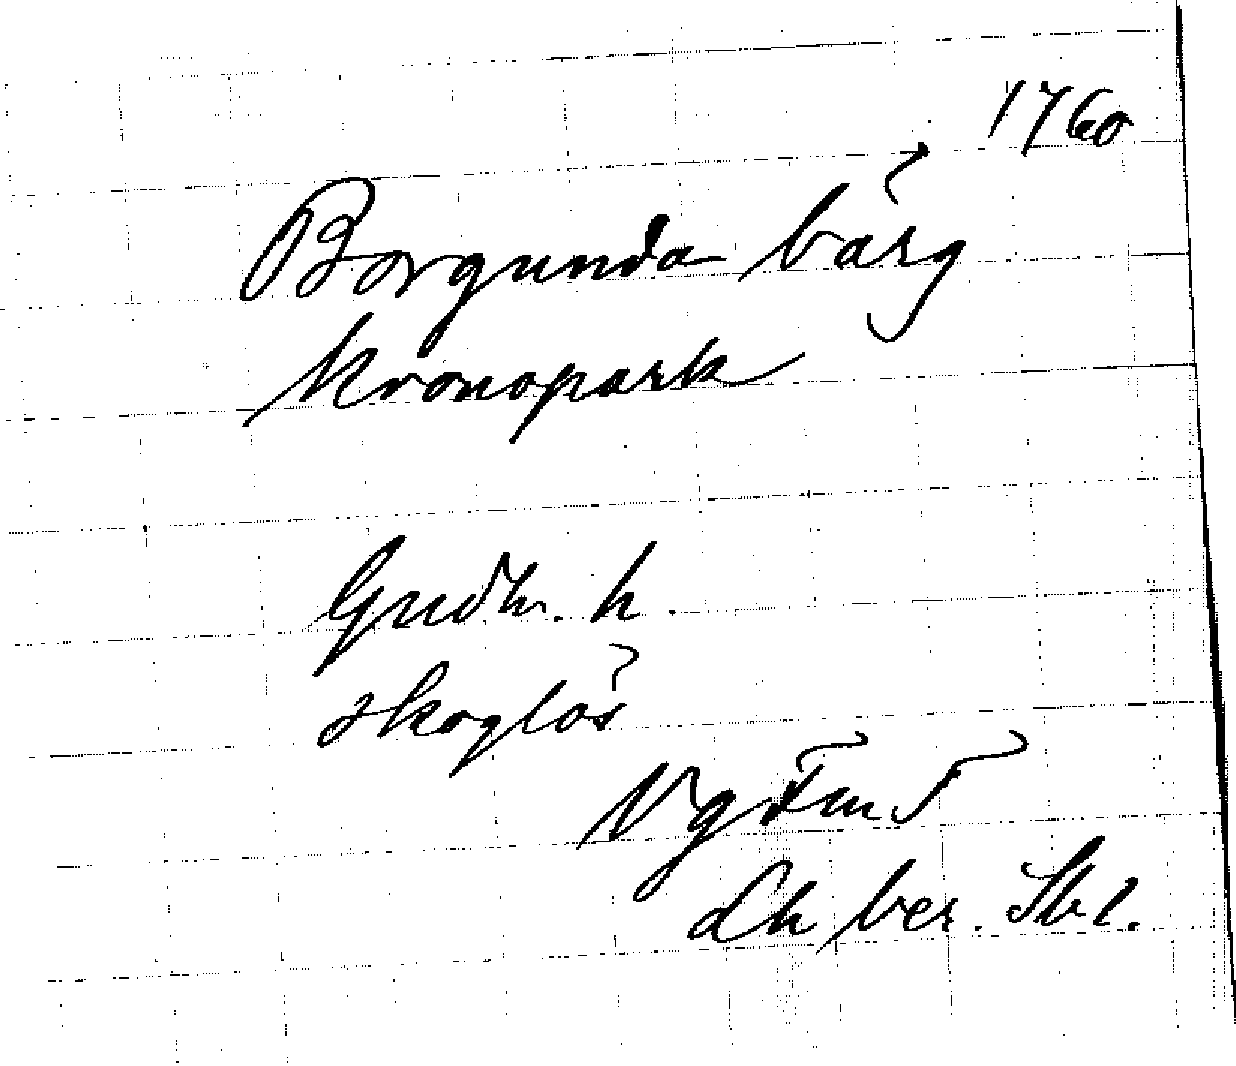 1760
Borgunda bärg
kronopark
Gudh. h.
skoglös
Vg Fm F
Lh ber. Skl.